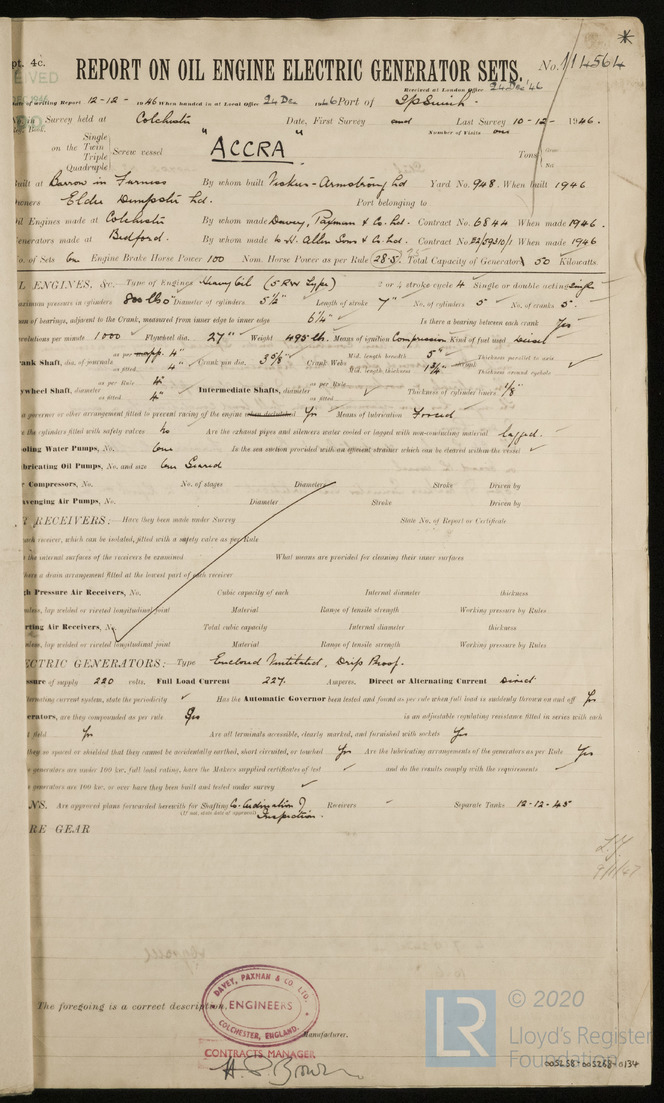 pt. 4c.
REPORT ON OIL ENGINE ELECTRIC GENERATOR SETS.
No. 114564
Received at London Office 24 Dec '46
Date of writing Report 12-12-1946 When handed in at Local Office 24 Dec 1946 Port of Ipswich.
Survey held at Colchester Date, First Survey and Last Survey 10-12-1946.
Number of Visits one
on the Single Twin Triple Quadruple Screw vessel "ACCRA" Tons Gross Net
Built at Barrow in Furness By whom built Vickers-Armstrong Ltd Yard No. 948. When built 1946
Owners Elder Dempster Ld. Port belonging to
Oil Engines made at Colchester By whom made Davey, Paxman & Co. Ltd. Contract No. 6844 When made 1946.
Generators made at Bedford. By whom made W. H. Allen Sons & Co. Ltd. Contract No. 22/59310/1 When made 1946
No. of Sets One Engine Brake Horse Power 100 Nom. Horse Power as per Rule 28.5 Total Capacity of Generators 50 Kilowatts.
OIL ENGINES, &c. Type of Engines Heavy Oil (5 RW Type) 2 or 4 stroke cycle 4 Single or double acting Single
Maximum pressure in cylinders 800 lbs □" Diameter of cylinders 5½" Length of stroke 7" No. of cylinders 5 No. of cranks 5
Span of bearings, adjacent to the Crank, measured from inner edge to inner edge 6¼" Is there a bearing between each crank Yes
Revolutions per minute 1000 Flywheel dia. 27" Weight 495 lb. Means of ignition Compression Kind of fuel used Diesel
Crank Shaft, dia. of journals as per Rule app. 4" as fitted 4" Crank pin dia. 3⅝" Crank Webs Mid. length breadth 5" Mid. length thickness 1¾" Thickness parallel to axis Thickness around eyehole
Flywheel Shaft, diameter as per Rule 4" as fitted 4" Intermediate Shafts, diameter as per Rule as fitted Thickness of cylinder liners ⅛"
Is a governor or other arrangement fitted to prevent racing of the engine when declutched Yes Means of lubrication Forced
Are the cylinders fitted with safety valves No Are the exhaust pipes and silencers water cooled or lagged with non-conducting material lagged.
Cooling Water Pumps, No. One Is the sea suction provided with an efficient strainer which can be cleared within the vessel
Lubricating Oil Pumps, No. and size One Geared
Air Compressors, No. No. of stages Diameters Stroke Driven by
Scavenging Air Pumps, No. Diameter Stroke Driven by
AIR RECEIVERS:—Have they been made under Survey State No. of Report or Certificate
Is each receiver, which can be isolated, fitted with a safety valve as per Rule
Can the internal surfaces of the receivers be examined What means are provided for cleaning their inner surfaces
Is there a drain arrangement fitted at the lowest part of each receiver
High Pressure Air Receivers, No. Cubic capacity of each Internal diameter thickness
Seamless, lap welded or riveted longitudinal joint Material Range of tensile strength Working pressure by Rules
Starting Air Receivers, No. Total cubic capacity Internal diameter thickness
Seamless, lap welded or riveted longitudinal joint Material Range of tensile strength Working pressure by Rules
ELECTRIC GENERATORS:—Type Enclosed Ventilated, Drip Proof.
Pressure of supply 220 volts. Full Load Current 227. Amperes. Direct or Alternating Current Direct
If alternating current system, state the periodicity Has the Automatic Governor been tested and found as per rule when full load is suddenly thrown on and off Yes
Generators, are they compounded as per rule Yes is an adjustable regulating resistance fitted in series with each
field Yes Are all terminals accessible, clearly marked, and furnished with sockets Yes
Are they so spaced or shielded that they cannot be accidentally earthed, short circuited, or touched Yes Are the lubricating arrangements of the generators as per Rule Yes
If the generators are under 100 kw. full load rating, have the Makers supplied certificates of test and do the results comply with the requirements
If the generators are 100 kw. or over have they been built and tested under survey
PLANS. Are approved plans forwarded herewith for Shafting Co-Ordination of Inspection. Receivers Separate Tanks 12-12-45
(If not, state date of approval)
SPARE GEAR
The foregoing is a correct description.
DAVEY, PAXMAN & CO. LTD.
ENGINEERS
COLCHESTER, ENGLAND.
Manufacturer.
CONTRACTS MANAGER
LR
© 2020
Lloyd's Register
Foundation
005258-005268-0134